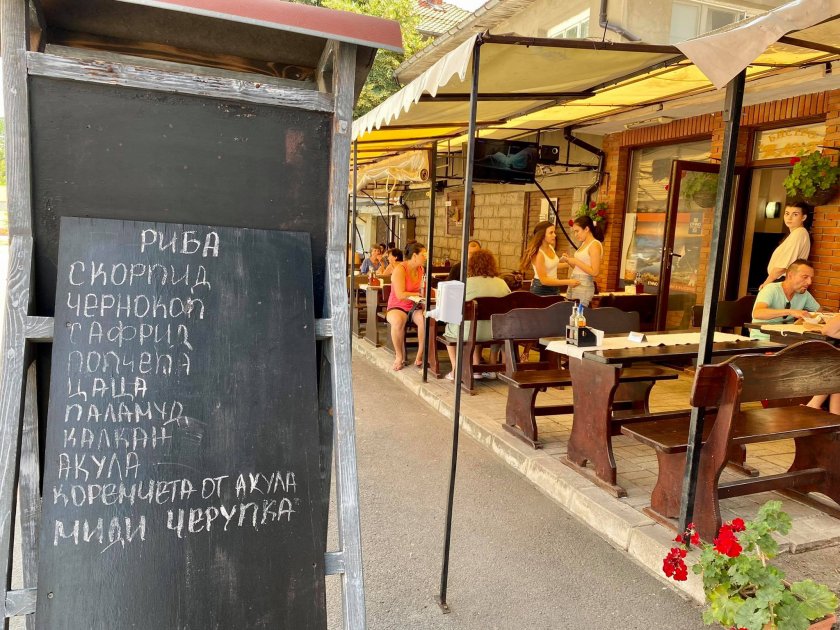 РИБА
СКОРПИД
ЧЕРНОКОП
САФРИД
ПОПЧЕТА
ЦАЦА
ПАЛАМУД
КАЛКАН
АКУЛА
КОРЕМЧЕТА ОТ АКУЛА
МИДИ ЧЕРУПКА